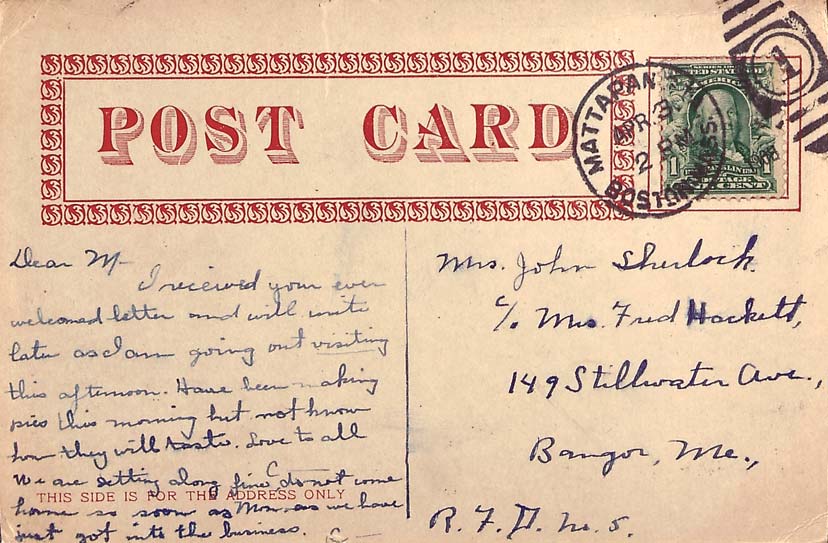 POST CARD
MATTAPAN
APR. 3
2 PM
BOSTON, MASS.
1908
1
SERIES
UNITED STATES OF
AMERICA
1
FRANKLIN
POSTAGE
CENT
Dear M
I received your ever
welcomed letter and will write
later as I am going out visiting
this afternoon. Have been making
pies this morning but not know
how they will taste. Love to all
We are getting along fine do not come
THIS SIDE IS FOR THE ADDRESS ONLY
home so soon as Mon. as we have
just got into the business.
C
Mrs. John Sherlock.
c/o Mrs. Fred Hackett,
149 Stillwater Ave.,
Bangor, Me.,
R. F. D. No. 5.